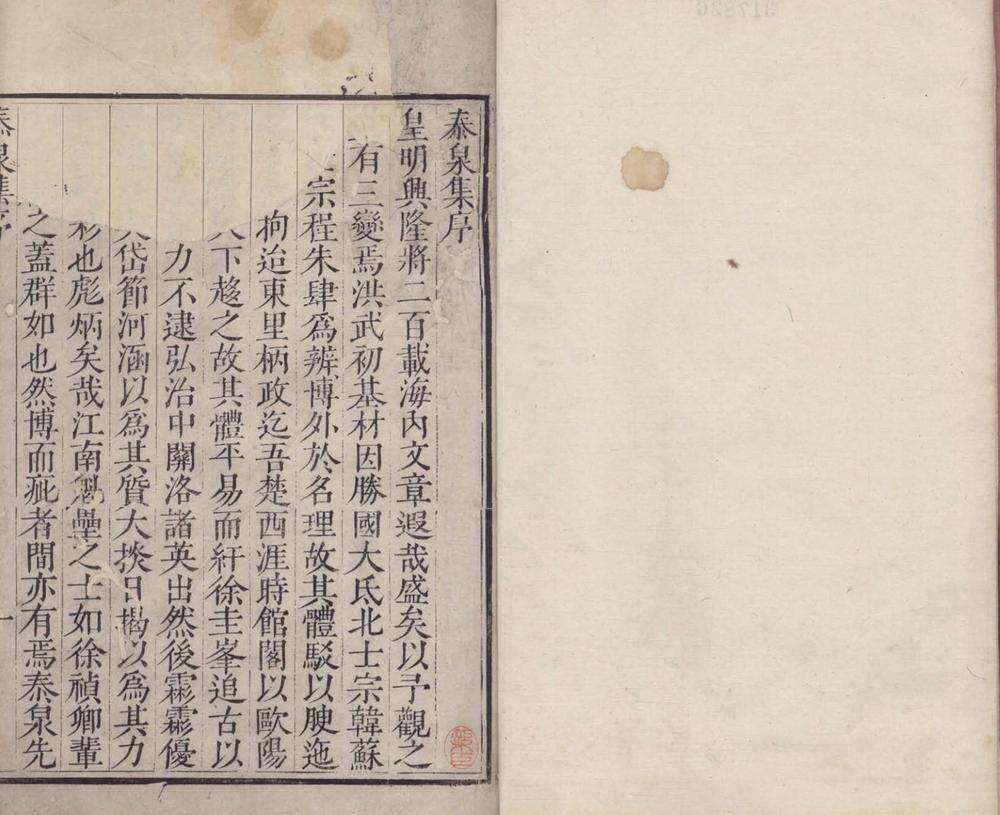 泰泉集序
皇明興隆將二百載海内文章遐哉盛矣以予觀之
有三變焉洪武初基材因勝國大氐北士宗韓蘇
宗程朱肆爲辨博外於名理故其體駁以腴迤
拘迨東里柄政迄吾楚西涯時館閣以歐陽
下趍之故其體平易而紆徐圭峯追古以
力不逮弘治中關洛諸英出然後霦霦優
岱節河涵以爲其質大掞日揭以爲其力
也彪炳矣哉江南壘之士如徐禎卿輩
之蓋群如也然博而疵者間亦有焉泰泉先
泰泉集序
一
317826